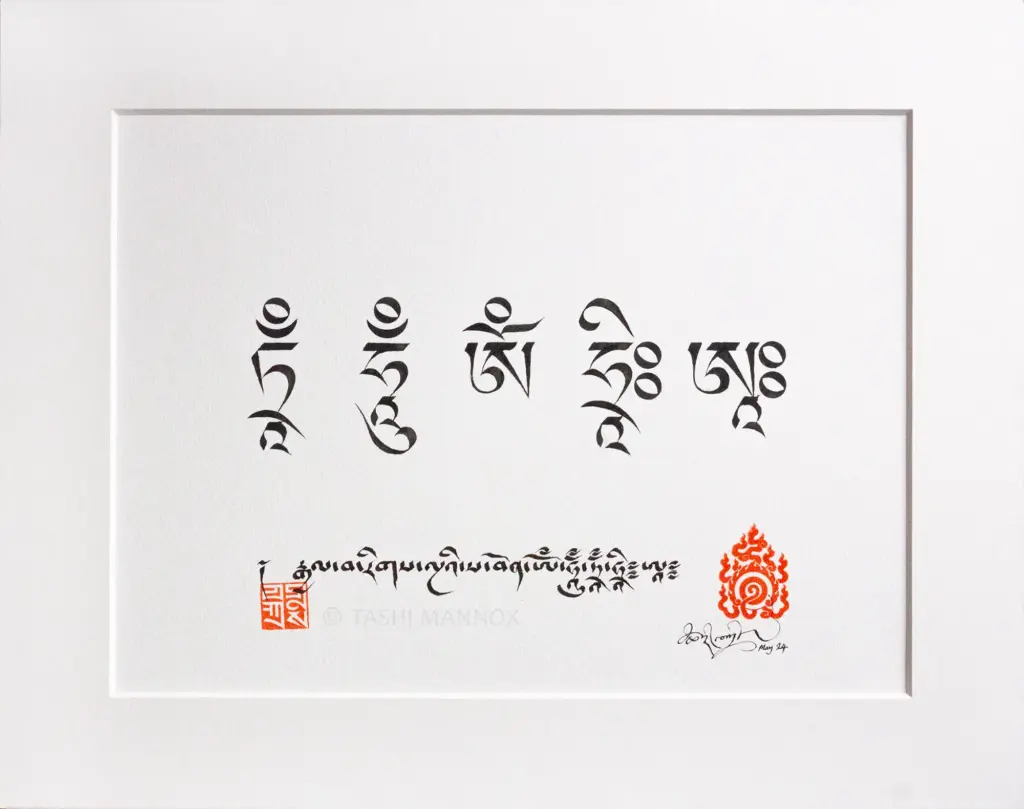 ཏྲྃ ཧཱུྃ ཨོཾ ཧྲིཿ ཨཱཿ
རྒྱལ་བ་རིགས་ལྔའི་ས་བོན་ཨོཾ་ཧཱུྃ་ཏྲྃ་ཧྲིཿ་ཨཱཿ
© TASHI MANNOX
May 24